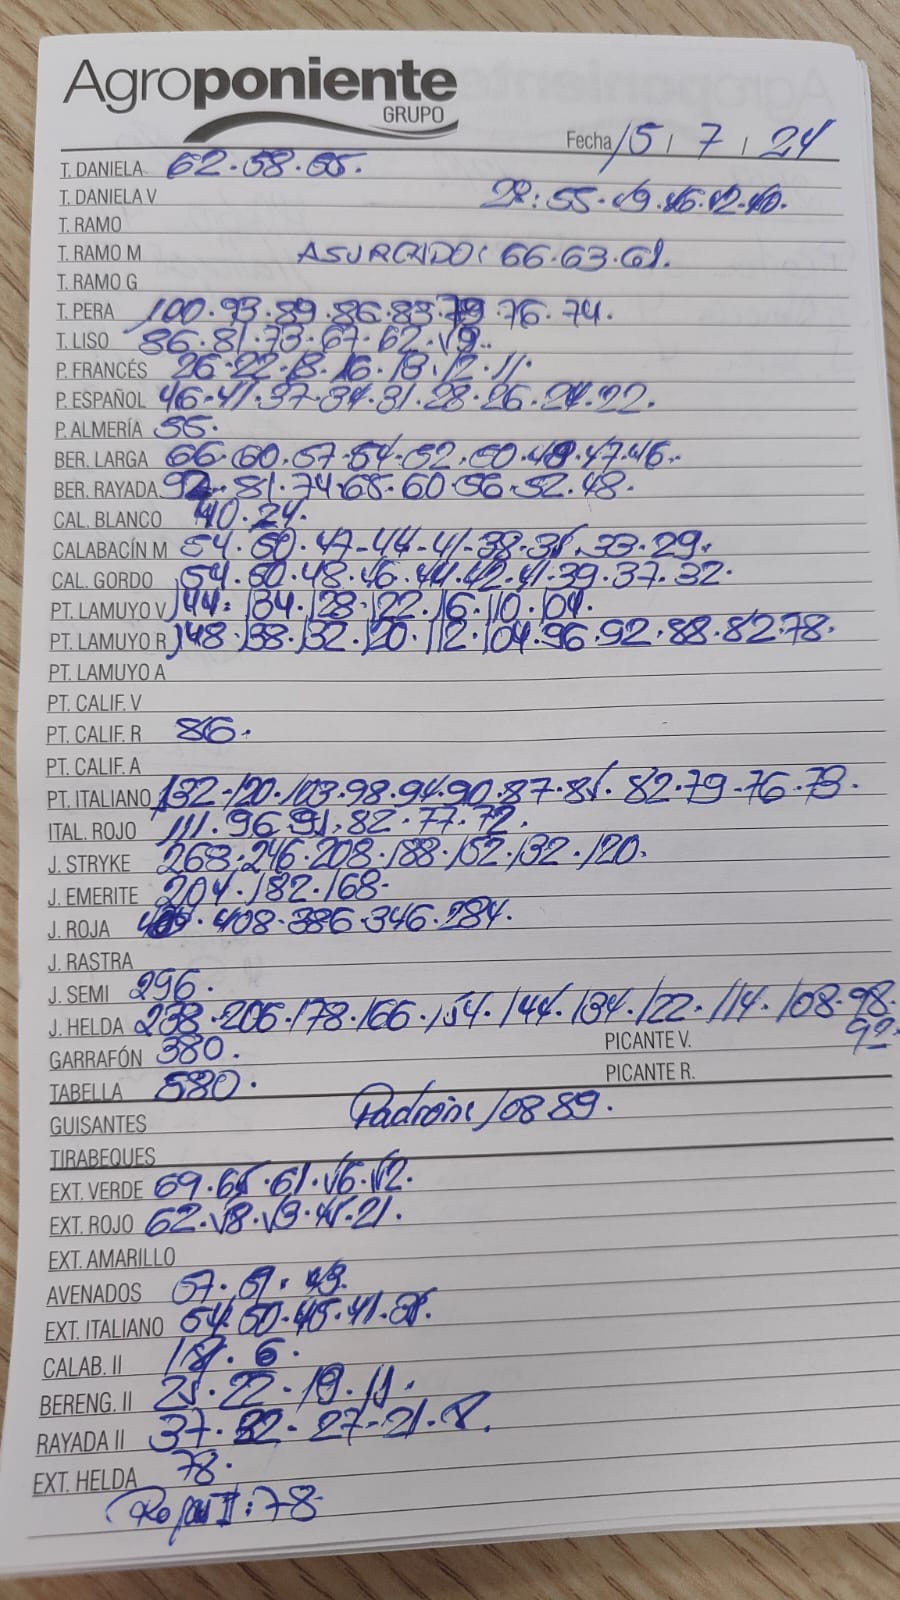 Agroponiente
GRUPO
Fecha 15 / 7 / 24
T. DANIELA 62.58.55.
T. DANIELA V 2ª: 55.49.46.42.40.
T. RAMO
T. RAMO M ASURCADO: 66.63.61.
T. RAMO G
T. PERA 100.93.89.86.83.79.76.74.
T. LISO 86.81.73.67.62.59.
P. FRANCÉS 26.22.18.16.13.12.11.
P. ESPAÑOL 46.41.37.34.31.28.26.24.22.
P. ALMERÍA 55.
BER. LARGA 66.60.57.54.52.50.49.47.46.
BER. RAYADA 92.81.74.68.60.56.52.48.
CAL. BLANCO 40.24.
CALABACÍN M 54.50.47-44-41-38.35.33.29.
CAL. GORDO 54.50.48.46.44.42.41.39.37.32.
PT. LAMUYO V 144.134.128.122.116.110.104.
PT. LAMUYO R 148.138.132.120.112.104.96.92.88.82.78.
PT. LAMUYO A
PT. CALIF. V
PT. CALIF. R 86.
PT. CALIF. A
PT. ITALIANO 132-120.103.98.94.90.87.85.82.79.76.73.
ITAL. ROJO 111.96.91.82.77.72.
J. STRYKE 268.246.208.188.152.132.120.
J. EMERITE 204.182.168.
J. ROJA 408.386.346.284.
J. RASTRA
J. SEMI 296.
J. HELDA 238.206.178.166.154.144.134.122.114.108.98.
92.
GARRAFÓN 380. PICANTE V.
TABELLA 580. PICANTE R.
GUISANTES Padrón: 108 89.
TIRABEQUES
EXT. VERDE 69.65.61.56.52.
EXT. ROJO 62.58.53.45.21.
EXT. AMARILLO
AVENADOS 57.51.
EXT. ITALIANO 54.50.45.41.
CALAB. II 6.
BERENG. II 25.22.19.11.
RAYADA II 37.32.27-21.
EXT. HELDA 78.
Roja II: 78.